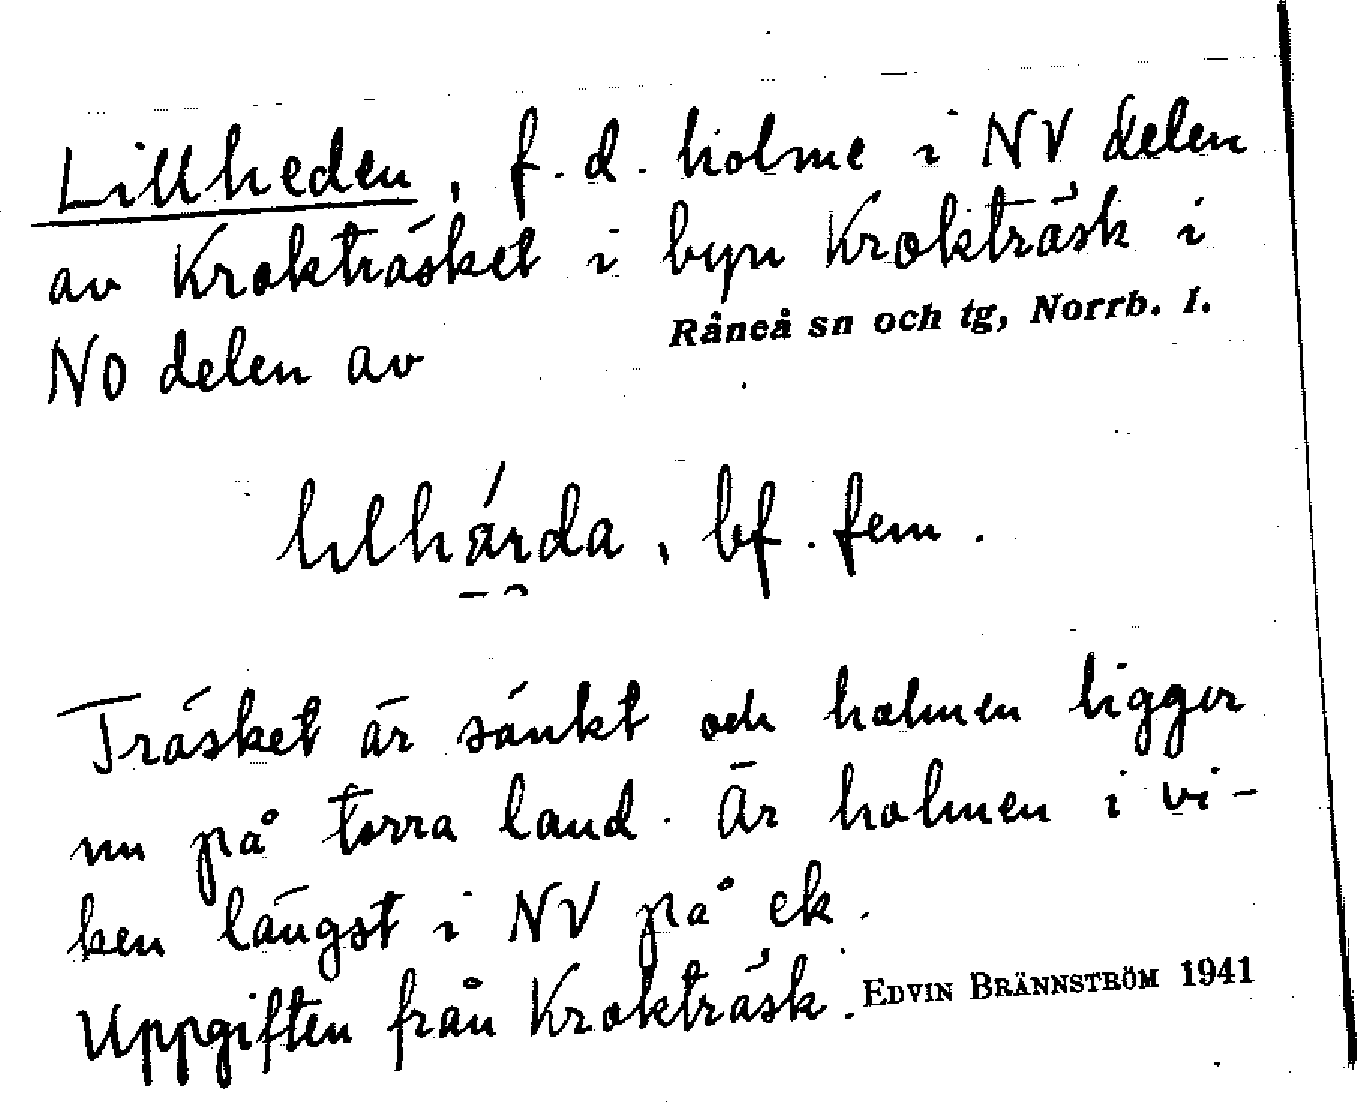 Lillheden, f.d. holme i NV delen
av Krokträsket i byn Krokträsk i
NO delen av Råneå sn och tg, Norrb. l.
lilhä́rda, bf. fem.
Träsket är sänkt och holmen ligger
nu på torra land. Är holmen i vi-
ken längst i NV på ek.
Uppgiften från Krokträsk. EDVIN BRÄNNSTRÖM 1941